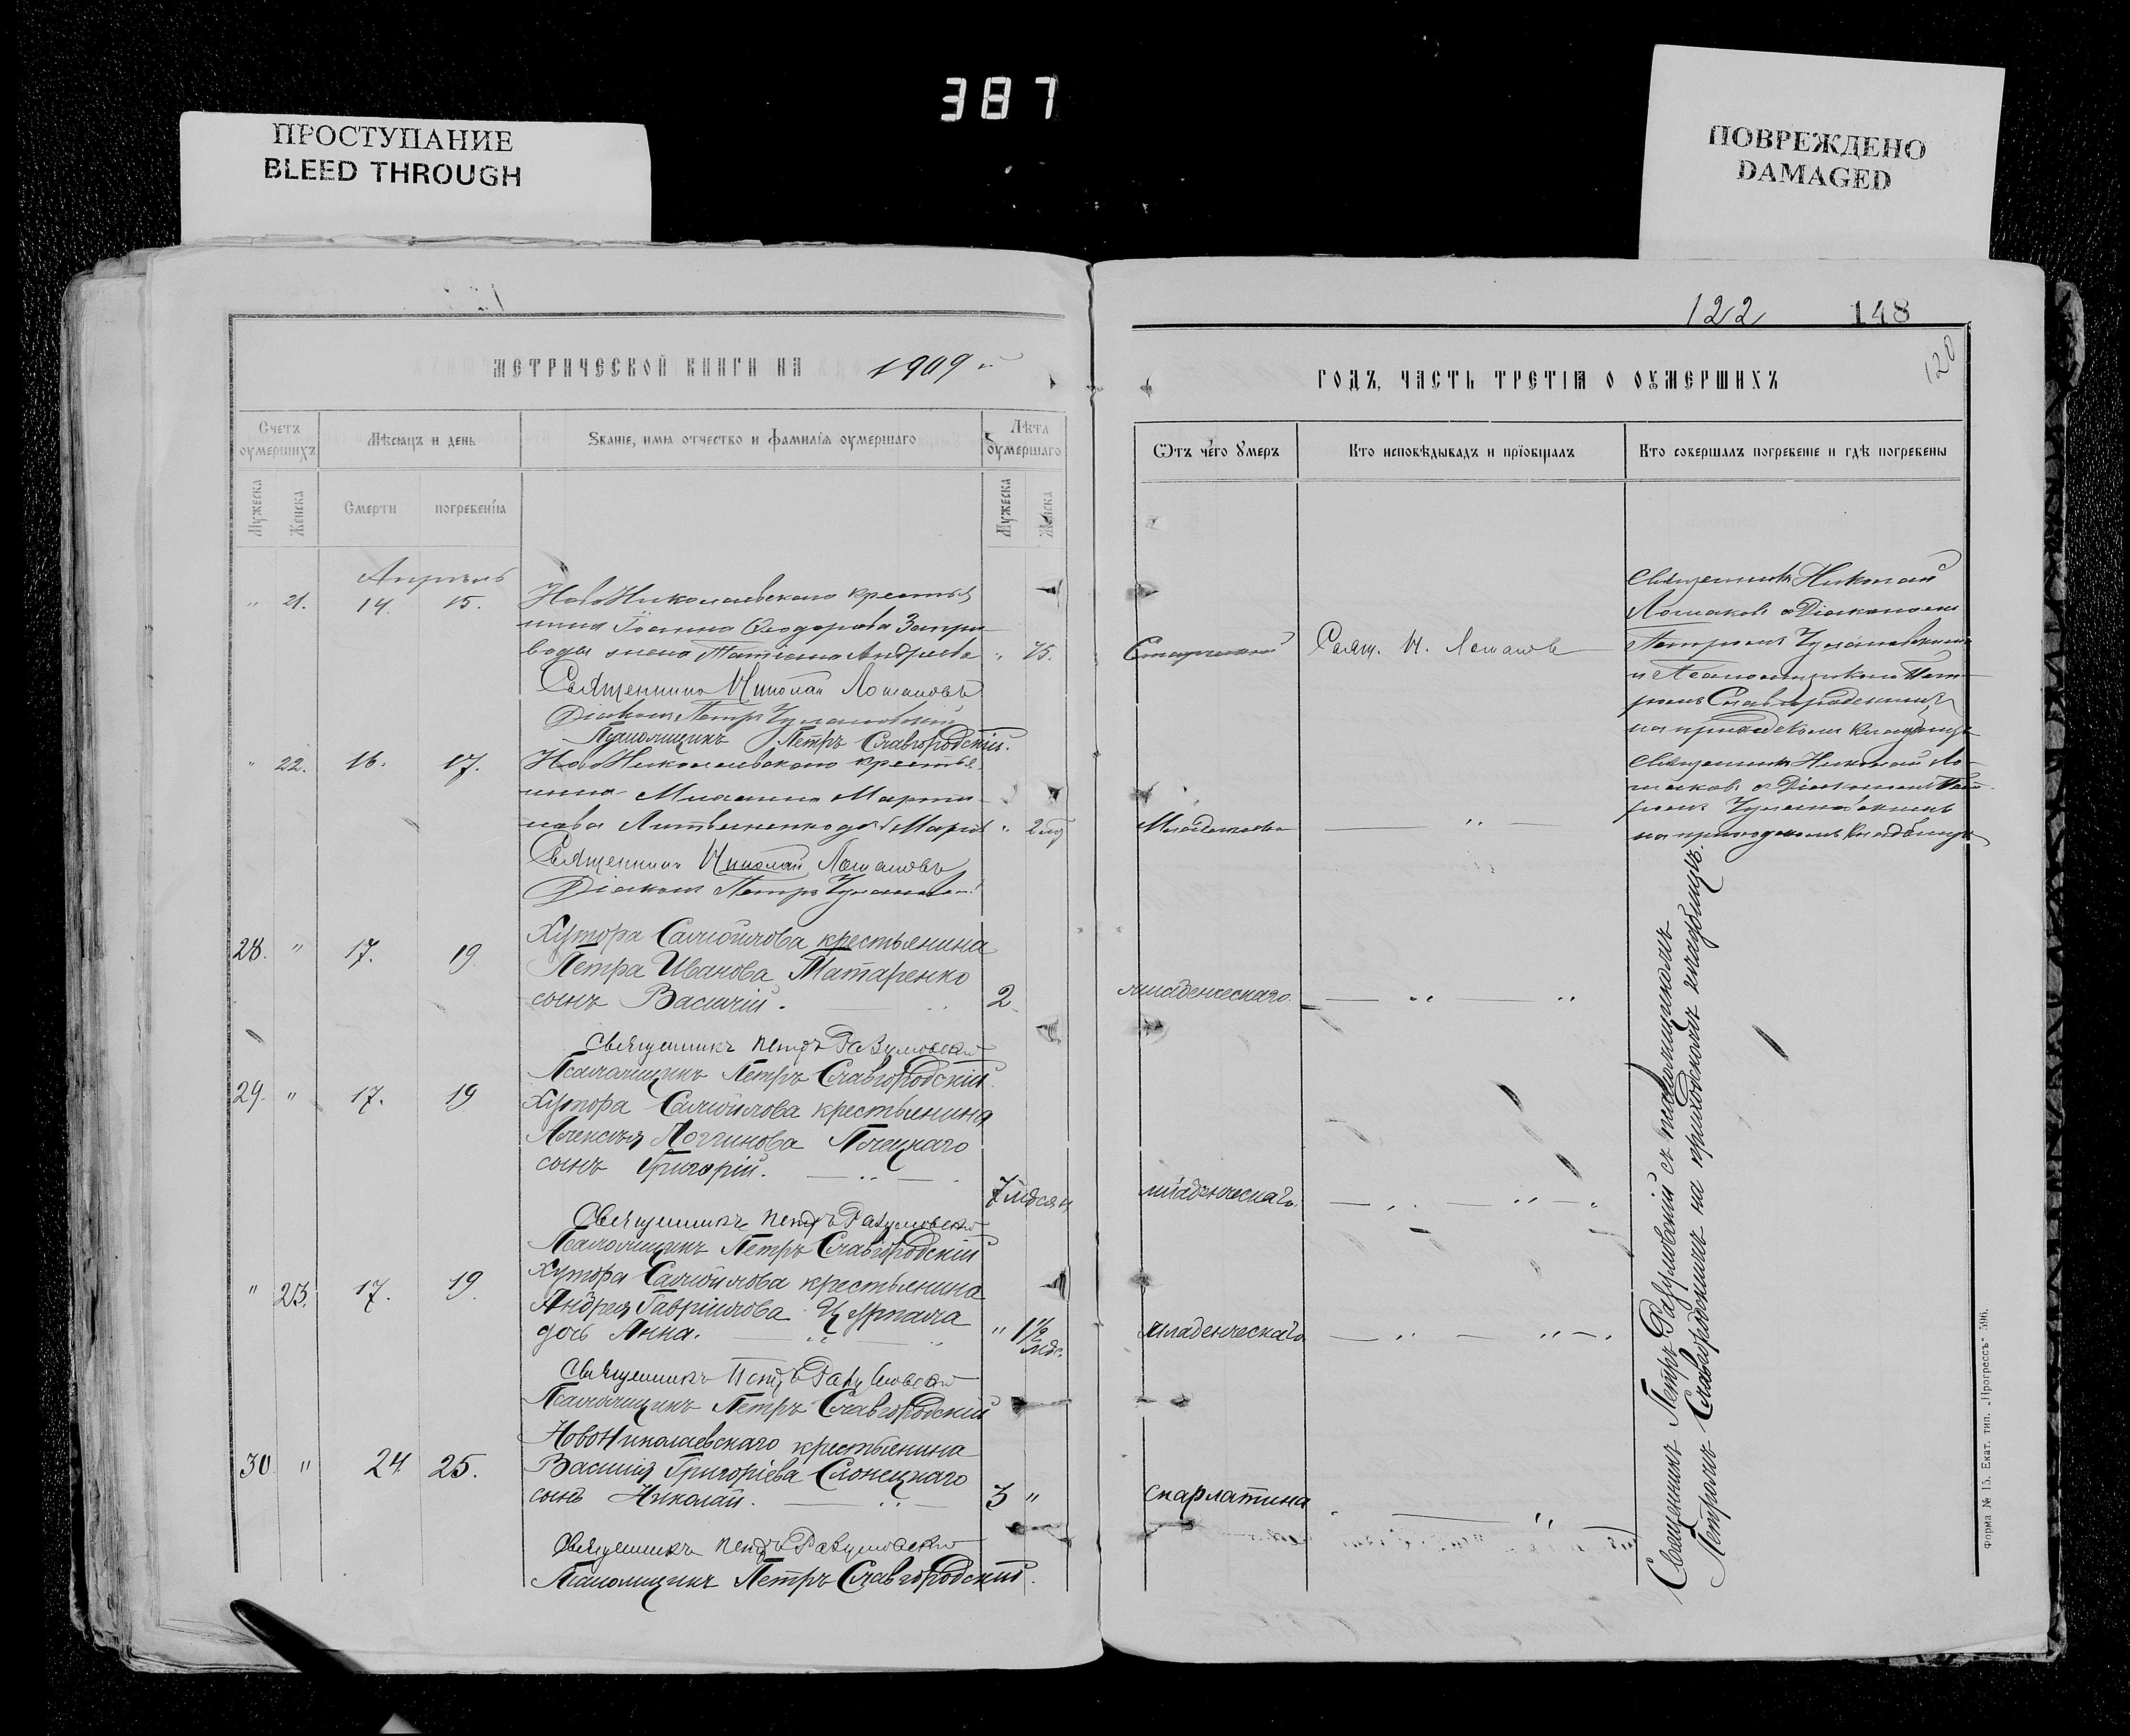 387
ПРОСТУПАНИЕ
BLEED THROUGH
ПОВРЕЖДЕНО
DAMAGED
МЕТРИЧЕСКОЙ КНИГИ НА 1909 й
Счетъ оумершихъ
Мѣсяцъ и день
Званіе, имя отчество и фамилія оумершаго
Лѣта оумершаго
Мужеска
Женска
Смерти
погребенія
Мужеска
Женска
Апрѣль
" 21. 14. 15. НовоНиколаевскаго крестья
нина Іоанна Ѳеодорова Запри
воды жена Татіана Андреева " 75.
Священникъ Николай Лошаковъ
Діаконъ Петръ
Псаломщикъ Петръ Славгородскій.
" 22. 16. 17. НовоНиколаевскаго крестья
нина Михаила Марти
нова Литвиненко дочь Марія " 2
Священникъ Николай Лошаковъ
Діаконъ Петръ
28. " 17. 19. Хутора Самойлова крестьянина
Петра Иванова Татаренко
сынъ Василій. 2
Священникъ Петръ Разумовскій
Псаломщикъ Петръ Славгородскій.
29. " 17. 19 Хутора Самойлова крестьянина
Алексѣя Логгинова Плецкаго
сынъ Григорій. 7 мѣсяц
Священникъ Петръ Разумовскій
Псаломщикъ Петръ Славгородскій
" 23. 17. 19. Хутора Самойлова крестьянина
Андрея Гавріилова
дочь Анна. " 1½ мѣс.
Священникъ Петръ Разумовскій
Псаломщикъ Петръ Славгородскій
30 " 24 25. НовоНиколаевскаго крестьянина
Василія Григоріева Слонецкаго
сынъ Николай. 3 "
Священникъ Петръ Разумовскій
Псаломщикъ Петръ Славгородскій.
122 148
120
ГОДЪ, ЧАСТЬ ТРЕТІЯ О ОУМЕРШИХЪ
Ѿтъ чего Умеръ
Кто исповѣдывалъ и пріобщалъ
Кто совершалъ погребеніе и гдѣ погребены
Старческой
Свящ. Н. Лошаковъ
Священникъ Николай
Лошаковъ съ Діакономъ
Петромъ
и Псаломщикомъ Пет
ромъ Славгородскимъ
на приходскомъ кладбищѣ
Младенческа
Священникъ Николай Ло
шаковъ съ Діакономъ Пет
ромъ
на приходскомъ кладбищѣ
младенческаго
младенческаго.
младенческаго
скарлатина
Священникъ Петръ Разумовскій съ псаломщикомъ
Петромъ Славгородскимъ на приходскомъ кладбищѣ.
Форма № 15. Екат. тип. „Прогрессъ" 596.